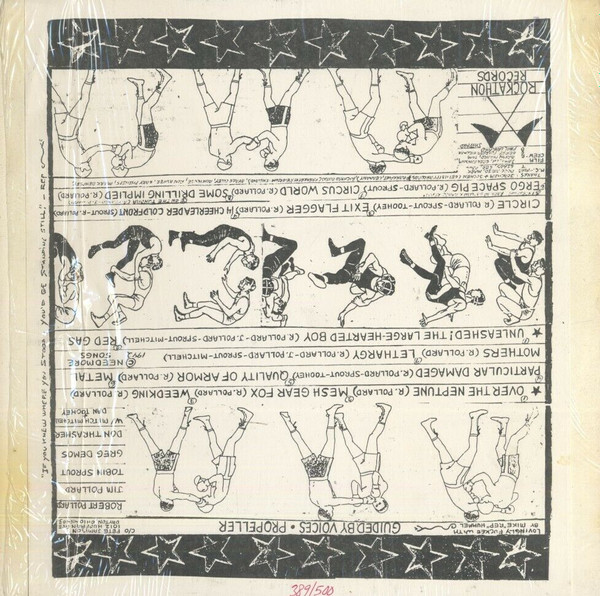 LOVINGLY FUCKED WITH
BY MIKE "REP" HUMMEL
GUIDED BY VOICES • PROPELLER
C/O PETE JAMISON
DAYTON OHIO
ROBERT POLLARD
JIM POLLARD
TOBIN SPROUT
GREG DEMOS
DON THRASHER
W/ MITCH MITCHELL
DAN TOOHEY
★ OVER THE NEPTUNE / MESH GEAR FOX (R. POLLARD) WEEDKING (R. POLLARD)
PARTICULAR DAMAGED (R. POLLARD-SPROUT-TOOHEY) QUALITY OF ARMOR (R. POLLARD) METAL
MOTHERS (R. POLLARD) LETHARGY (R. POLLARD-J. POLLARD-SPROUT-MITCHELL) © NEEDMORE SONGS 1992
★ UNLEASHED! THE LARGE-HEARTED BOY (R. POLLARD-J. POLLARD-SPROUT-MITCHELL) RED GAS
CIRCLE (R. POLLARD-SPROUT-TOOHEY) EXIT FLAGGER (R. POLLARD) 14 CHEERLEADER COLDFRONT (SPROUT-R. POLLARD)
ERGO SPACE PIG (R. POLLARD-SPROUT) CIRCUS WORLD (R. POLLARD) SOME DRILLING IMPLIED (R. POLLARD)
ROCKATHON
RECORDS
"IF YOU KNEW WHERE YOU STOOD, YOU'D BE STANDING STILL." - REP
389/500